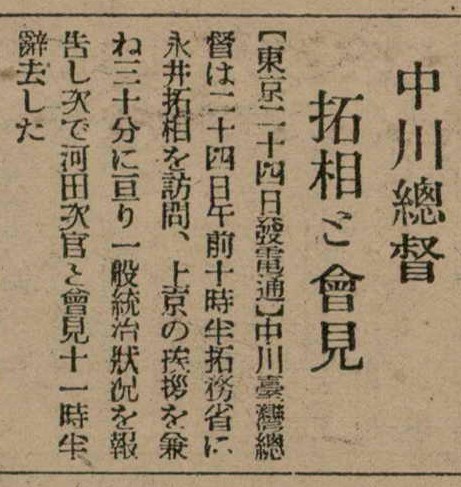 中川總督
拓相と會見
【東京二十四日發電通】中川臺灣總
督は二十四日午前十時半拓務省に
永井拓相を訪問、上京の挨拶を兼
ね三十分に亘り一般統治狀況を報
告し次で河田次官と會見十一時半
辭去した